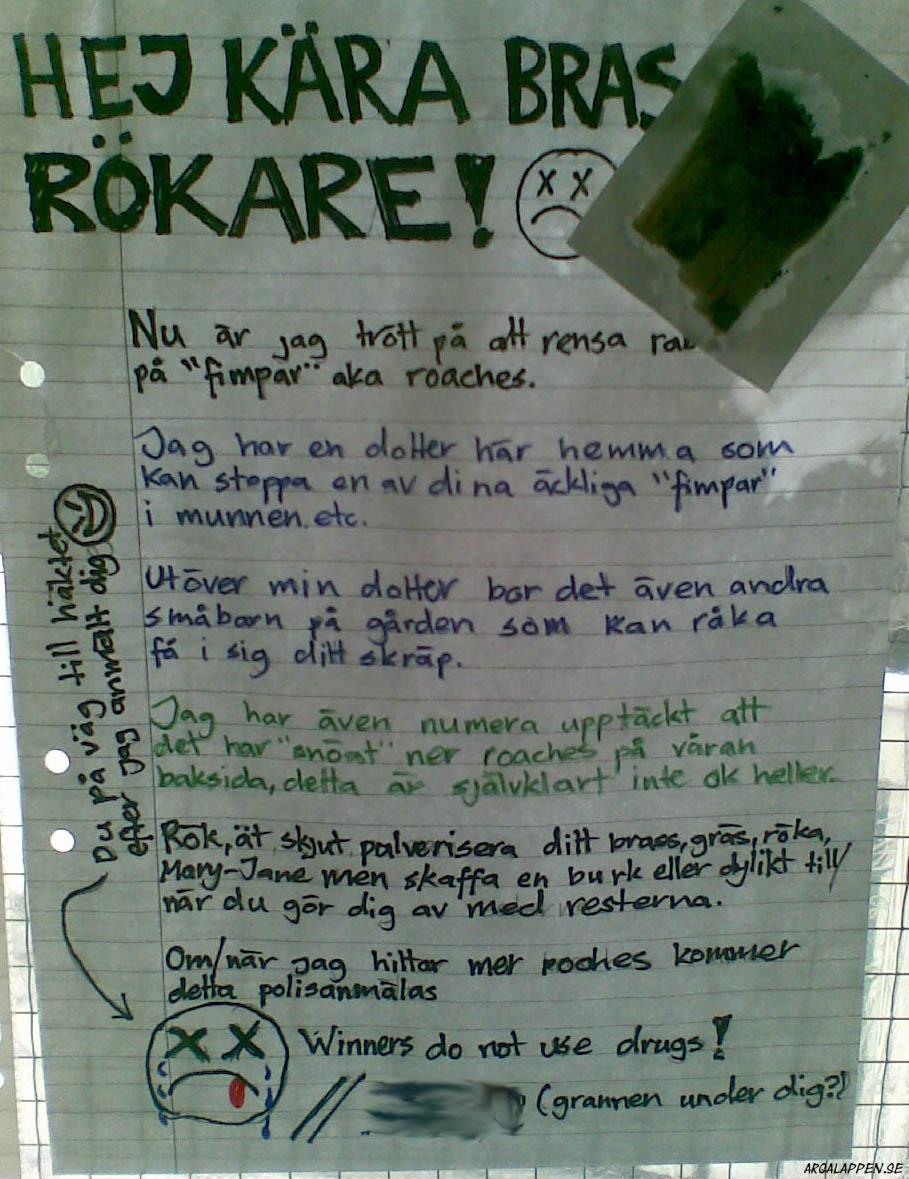 HEJ KÄRA BRAS
RÖKARE!
Nu är jag trött på att rensa
på "fimpar" aka roaches.
Jag har en dotter här hemma som
kan stoppa en av dina äckliga "fimpar"
i munnen. etc.
Utöver min dotter bor det även andra
småbarn på gården som kan råka
få i sig ditt skräp.
Jag har även numera upptäckt att
det har "snöat" ner roaches på våran
baksida, detta är självklart inte ok heller.
Rök, ät skjut pulverisera ditt brass, gräs, röka,
Mary-Jane men skaffa en burk eller dylikt till/
när du gör dig av med resterna.
Om/när jag hittar mer roches kommer
detta polisanmälas
Du på väg till häktet
efter jag anmält dig
Winners do not use drugs!
// (grannen under dig?)
ARGALAPPEN.SE